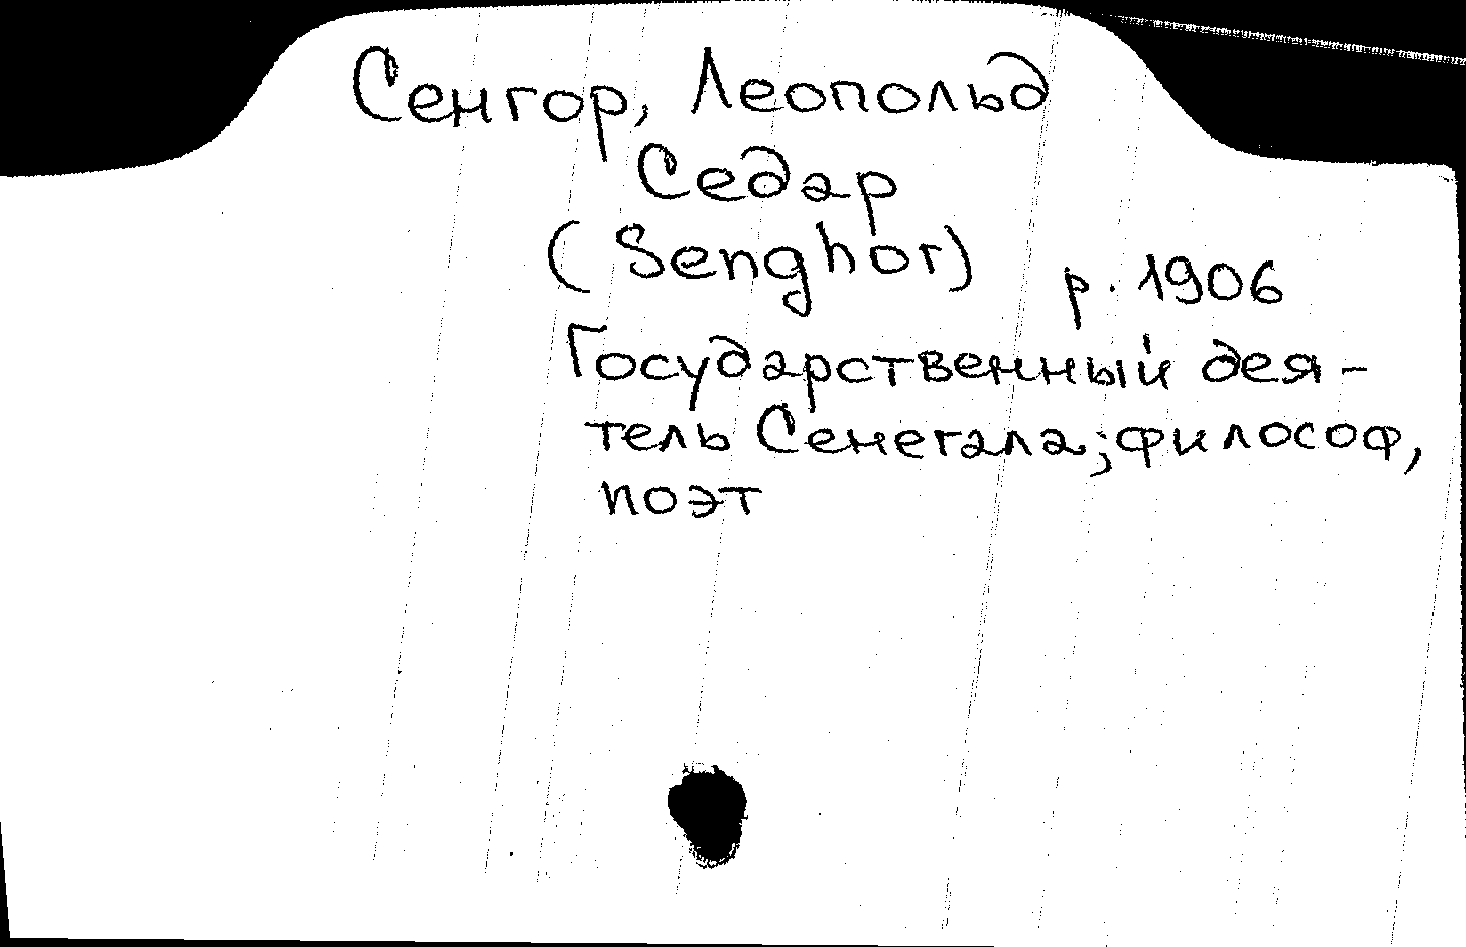 Сенгор, Леопольд
Седар
(Senghor)
р. 1906
Государственный дея-
тель Сенегала; философ,
поэт